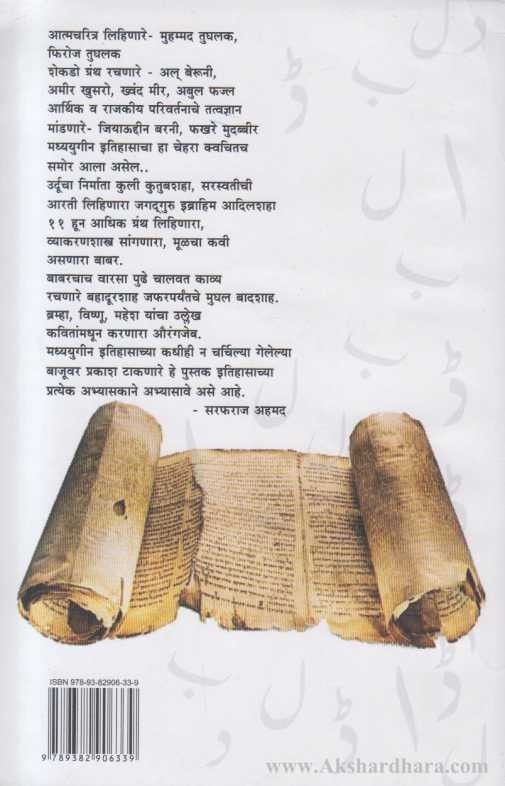 आत्मचरित्र लिहिणारे- मुहम्मद तुघलक,
फिरोज तुघलक
शेकडो ग्रंथ रचणारे - अल् बेरूनी,
अमीर खुसरो, ख्वंद मीर, अबुल फज्ल
आर्थिक व राजकीय परिवर्तनाचे तत्वज्ञान
मांडणारे- जियाऊद्दीन बरनी, फखरे मुदब्बीर
मध्ययुगीन इतिहासाचा हा चेहरा क्वचितच
समोर आला असेल..
उर्दूचा निर्माता कुली कुतुबशहा, सरस्वतीची
आरती लिहिणारा जगद्गुरु इब्राहिम आदिलशहा
११ हून आधिक ग्रंथ लिहिणारा,
व्याकरणशास्त्र सांगणारा, मूळचा कवी
असणारा बाबर.
बाबरचाच वारसा पुढे चालवत काव्य
रचणारे बहादूरशाह जफरपर्यंतचे मुघल बादशाह.
ब्रम्हा, विष्णू, महेश यांचा उल्लेख
कवितांमधून करणारा औरंगजेब.
मध्ययुगीन इतिहासाच्या कधीही न चर्चिल्या गेलेल्या
बाजूवर प्रकाश टाकणारे हे पुस्तक इतिहासाच्या
प्रत्येक अभ्यासकाने अभ्यासावे असे आहे.
- सरफराज अहमद
ISBN 978-93-82906-33-9
9 789382 906339
www.Akshardhara.com